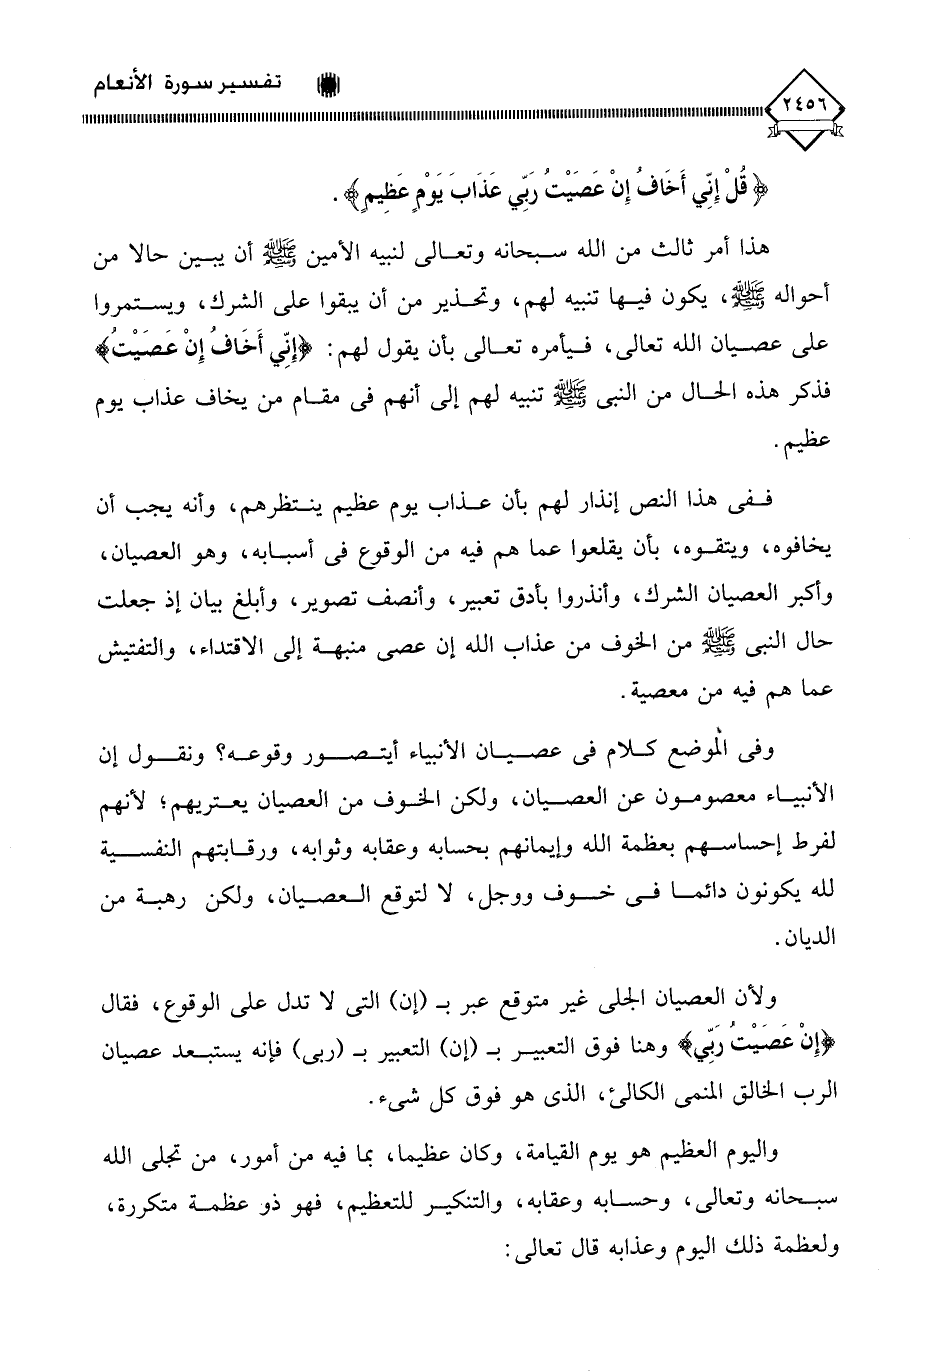 ٢٤٥٦
تفسير سورة الأنعام
﴿قُلْ إِنِّي أَخَافُ إِنْ عَصَيْتُ رَبِّي عَذَابَ يَوْمٍ عَظِيمٍ﴾.
هذا أمر ثالث من الله سبحانه وتعالى لنبيه الأمين ﷺ أن يبين حالا من
أحواله ﷺ، يكون فيها تنبيه لهم، وتحذير من أن يبقوا على الشرك، ويستمروا
على عصيان الله تعالى، فيأمره تعالى بأن يقول لهم: ﴿إِنِّي أَخَافُ إِنْ عَصَيْتُ﴾
فذكر هذه الحال من النبى ﷺ تنبيه لهم إلى أنهم فى مقام من يخاف عذاب يوم
عظيم.
ففى هذا النص إنذار لهم بأن عذاب يوم عظيم ينتظرهم، وأنه يجب أن
يخافوه، ويتقوه، بأن يقلعوا عما هم فيه من الوقوع فى أسبابه، وهو العصيان،
وأكبر العصيان الشرك، وأنذروا بأدق تعبير، وأنصف تصوير، وأبلغ بيان إذ جعلت
حال النبى ﷺ من الخوف من عذاب الله إن عصى منبهة إلى الاقتداء، والتفتيش
عما هم فيه من معصية.
وفى الموضع كلام فى عصيان الأنبياء أيتصور وقوعه؟ ونقول إن
الأنبياء معصومون عن العصيان، ولكن الخوف من العصيان يعتريهم؛ لأنهم
لفرط إحساسهم بعظمة الله وإيمانهم بحسابه وعقابه وثوابه، ورقابتهم النفسية
لله يكونون دائما فى خوف ووجل، لا لتوقع العصيان، ولكن رهبة من
الديان.
ولأن العصيان الجلى غير متوقع عبر بـ (إن) التى لا تدل على الوقوع، فقال
﴿إِنْ عَصَيْتُ رَبِّي﴾ وهنا فوق التعبير بـ (إن) التعبير بـ (ربى) فإنه يستبعد عصيان
الرب الخالق المنمى الكالئ، الذى هو فوق كل شىء.
واليوم العظيم هو يوم القيامة، وكان عظيما، بما فيه من أمور، من تجلى الله
سبحانه وتعالى، وحسابه وعقابه، والتنكير للتعظيم، فهو ذو عظمة متكررة،
ولعظمة ذلك اليوم وعذابه قال تعالى: